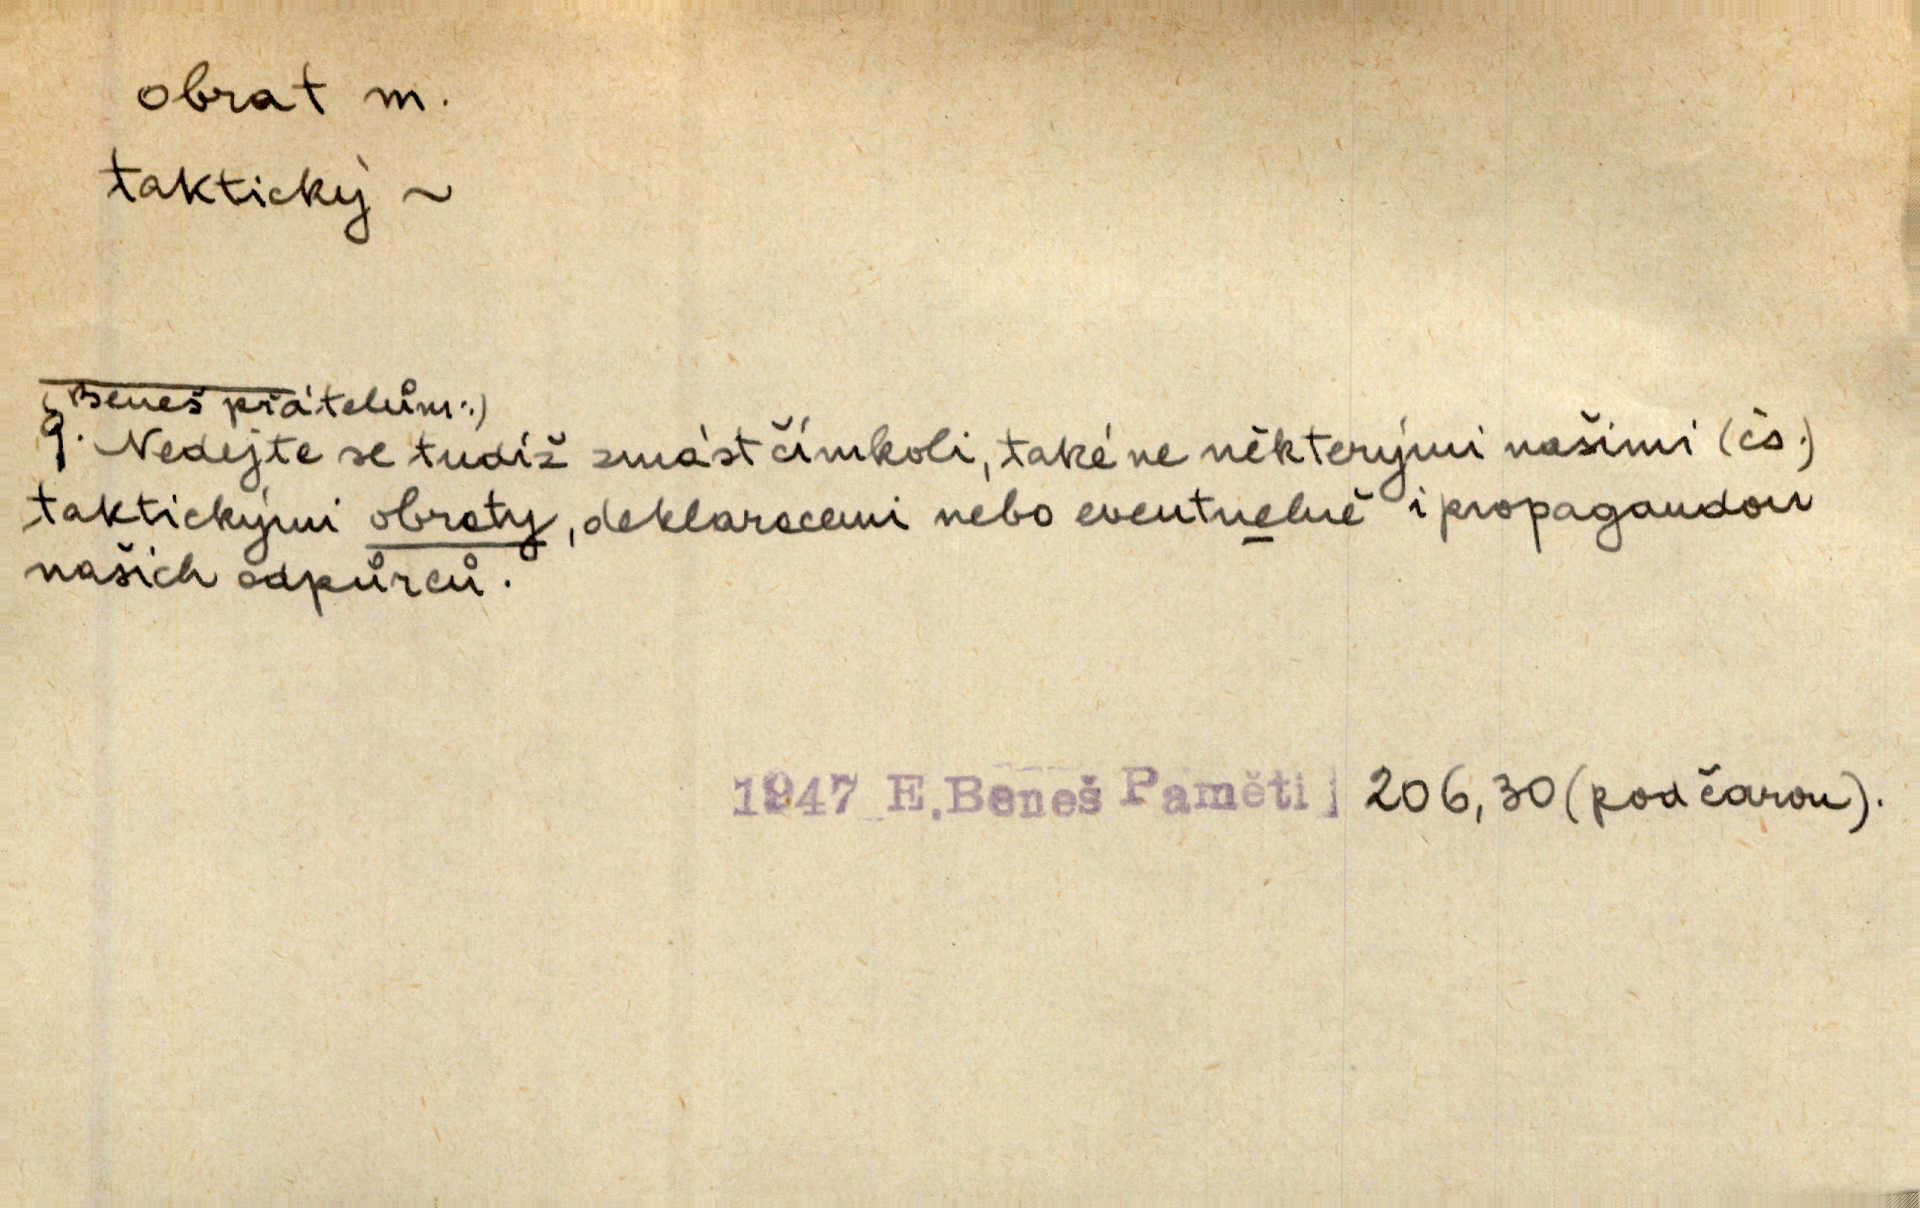 obrat m.
taktický ~
(Beneš přátelům:)
9. Nedejte se tudíž zmást čímkoli, také ne některými našimi (čs.)
taktickými obraty, deklaracemi nebo eventuelně i propagandou
našich odpůrců.
1947 E.Beneš Paměti 206,30 (pod čarou).